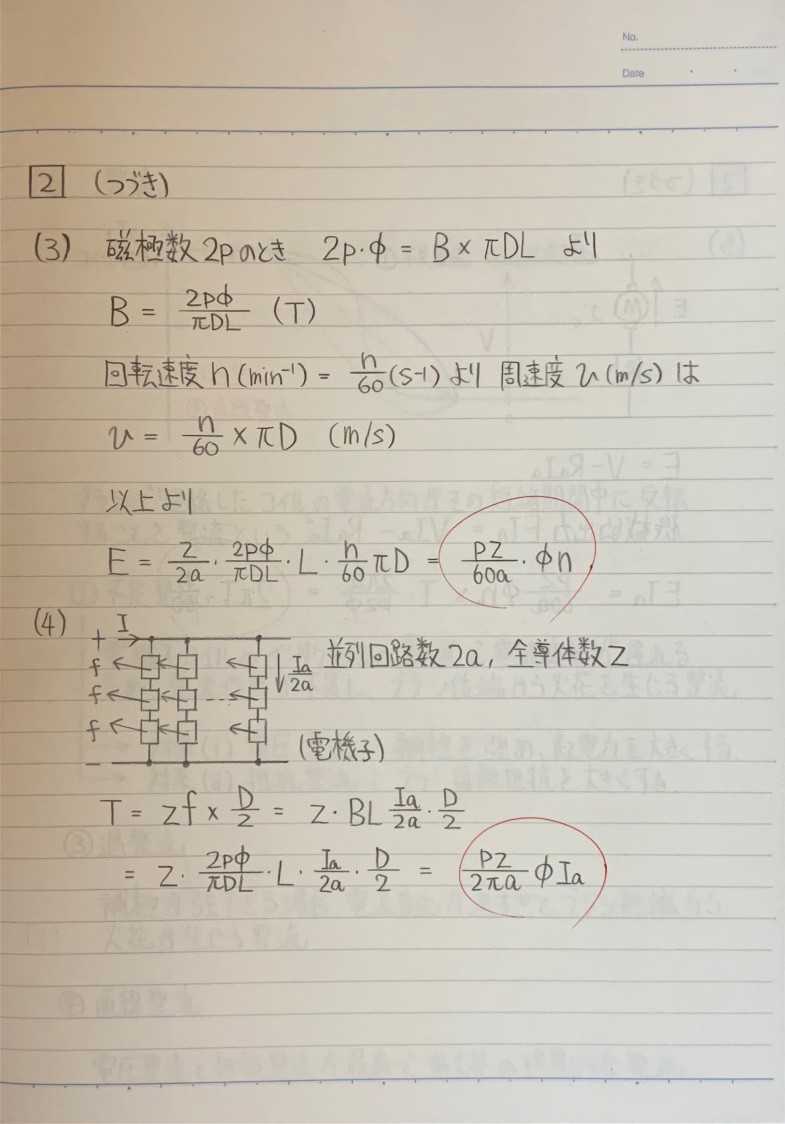 No.
Date
2 (つづき)
(3) 磁極数2pのとき 2p・φ = B × πDL より
B = 2pφ/πDL (T)
回転速度 n (min⁻¹) = n/60 (s-1) より 周速度 v (m/s) は
v = n/60 × πD (m/s)
以上より
E = Z/2a・2pφ/πDL・L・n/60 πD = pZ/60a・φn
(4)
+ I
f
f
f
−
Ia/2a
並列回路数2a, 全導体数Z
(電機子)
T = Zf × D/2 = Z・BL Ia/2a・D/2
= Z・2pφ/πDL・L・Ia/2a・D/2 = pZ/2πa φIa